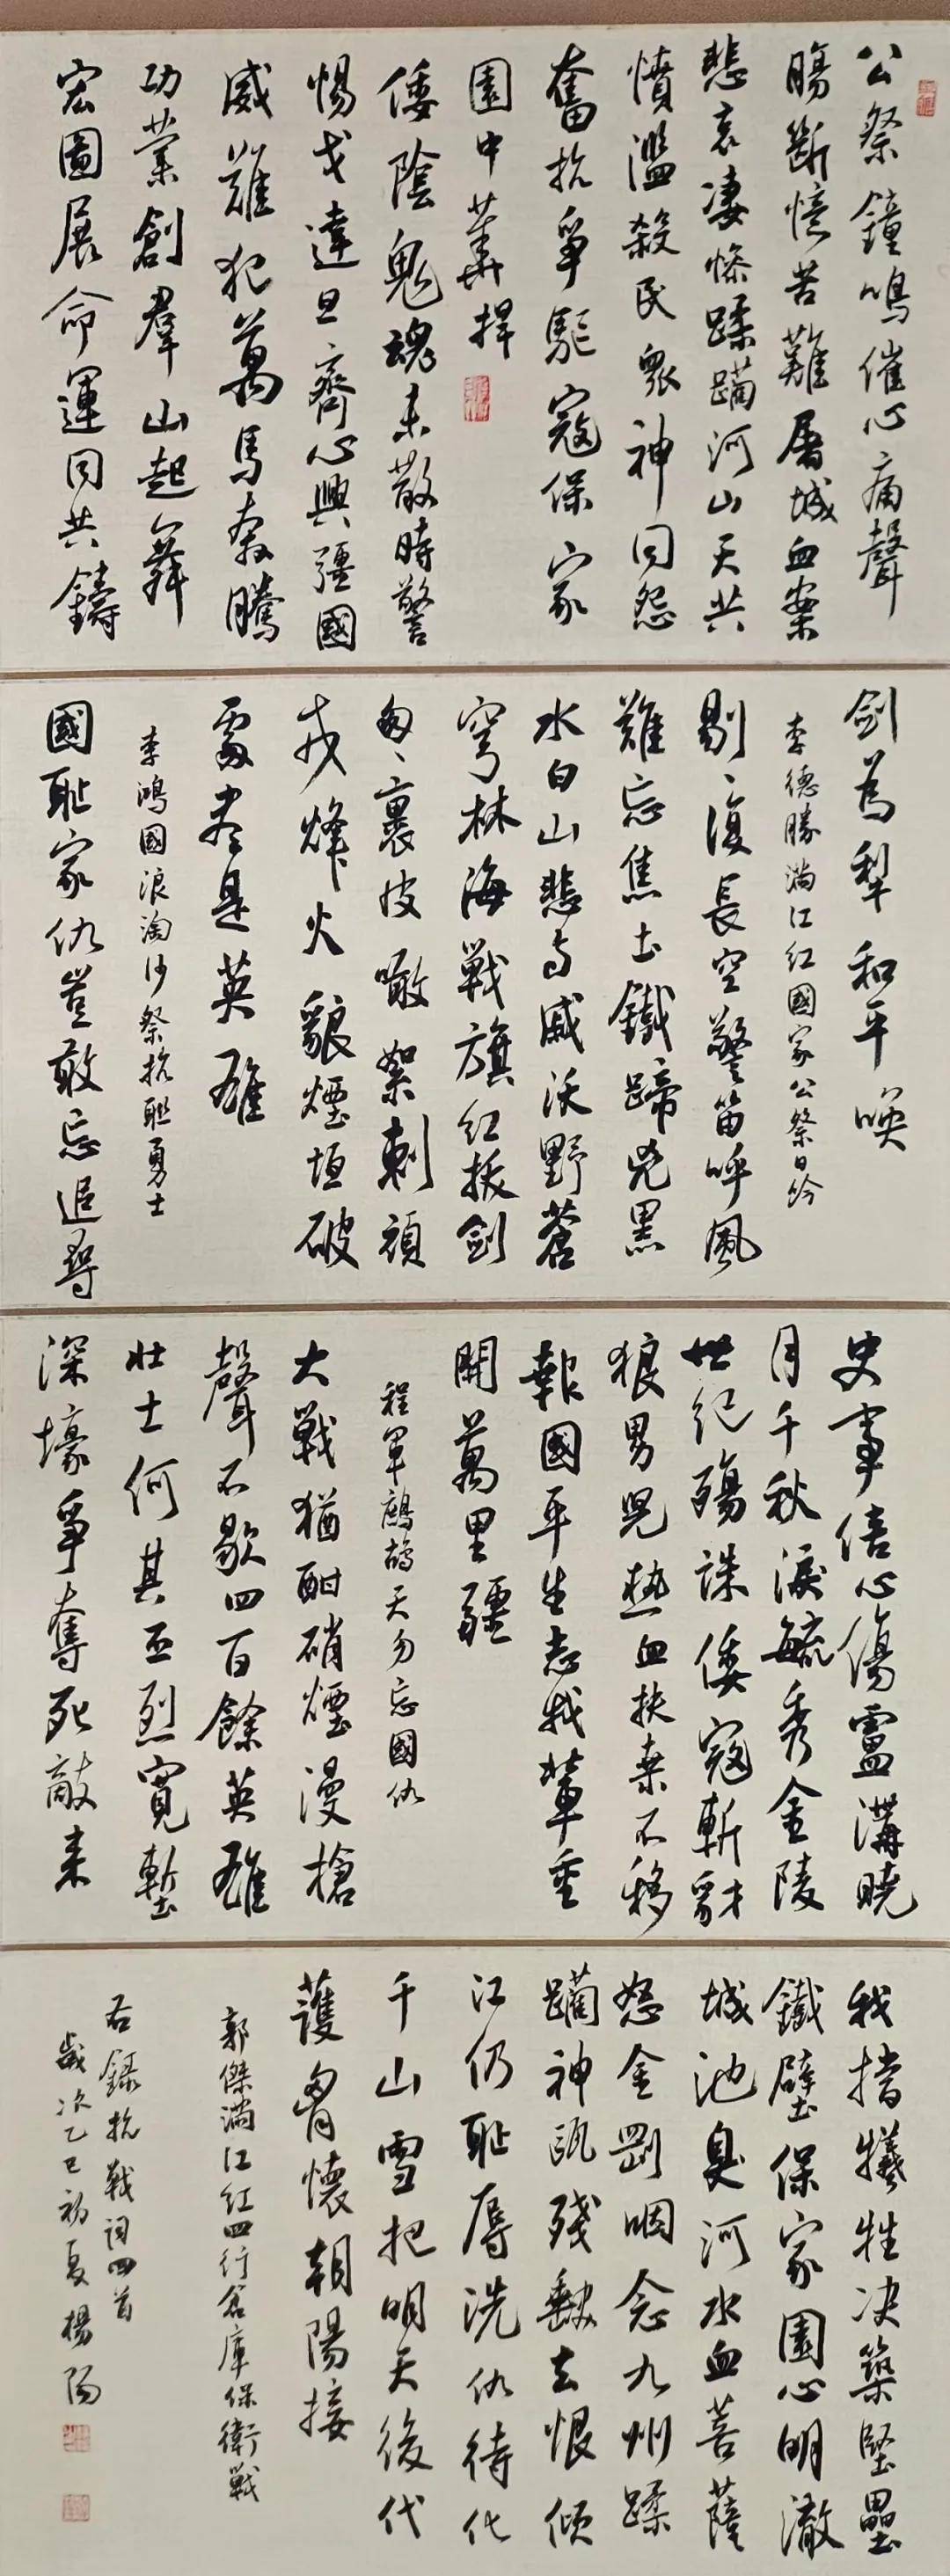 公祭鐘鳴催心痛聲
腸斷憶苦難屠城血案
悲哀凄慘蹂躪河山天共
憤濫殺民眾神同怨
奮抗爭驅寇保家
園中華捍
倭陰鬼魂未散時警
惕戈達旦齊心興強國
威難犯萬馬奔騰
功業創羣山起舞
宏圖展命運同共鑄
劍為犁和平喚
李德勝滿江紅國家公祭日吟
剔剔復長空警笛呼風
難忘焦土鐵蹄兇黑
水白山悲與戚沃野蒼
穹林海戰旗紅拔劍
匆匆裹皮嚼絮刺頑
戎烽火貌煙垣破
處盡是英雄
李鴻國浪淘沙祭抗聯勇士
國恥家仇豈敢忘追尋
史事倍心傷盧溝曉
月千秋淚毓秀金陵
世紀殤誅倭寇斬豺
狼男兒熱血扶桑不移
報國平生志我輩重
開萬里疆
程軍鷓鴣天勿忘國仇
大戰猶酣硝煙漫槍
聲不歇四百餘英雄
壯士何其丕烈寬塹
深壕爭奪死敵來
我擋犧牲決築堅壘
鐵壁保家園心明澈
城池臭河水血菩薩
怒金剛咽念九州蹂
躪神甌殘缺去恨傾
江仍恥辱洗仇待化
千山雪把明天後代
護胸懷朝陽接
郭傑滿江紅四行倉庫保衛戰
右錄抗戰詞四首
歲次乙巳初夏楊陽